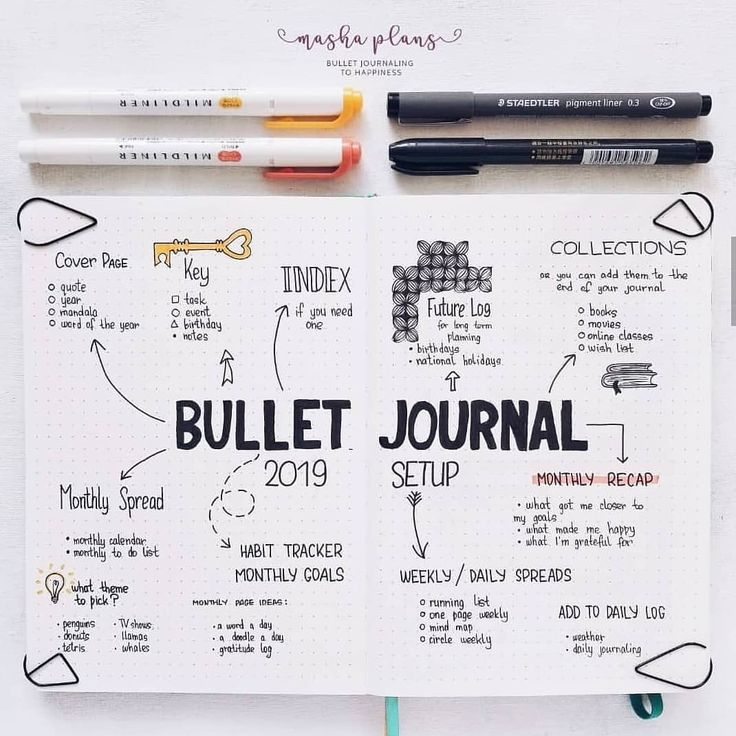 masha plans
BULLET JOURNALING
TO HAPPINESS
MILDLINER
MILDLINER
STAEDTLER pigment liner 0.3
COVER PAGE
quote
year
mandala
word of the year
Key
task
event
birthday
notes
INDEX
if you need
one
Future Log
for long term
planning
birthdays
national holidays
COLLECTIONS
or you can add them to the
end of your journal
books
movies
online classes
wish list
BULLET JOURNAL
2019 SETUP
Monthly Spread
monthly calendar
monthly to do list
what theme
to pick?
penguins
donuts
tetris
TV shows
llamas
whales
HABIT TRACKER
MONTHLY GOALS
MONTHLY PAGE IDEAS:
a word a day
a doodle a day
gratitude log
MONTHLY RECAP
what got me closer to
my goals
what made me happy
what I'm grateful for
WEEKLY / DAILY SPREADS
running list
one page weekly
mind map
circle weekly
ADD TO DAILY LOG
weather
daily journaling